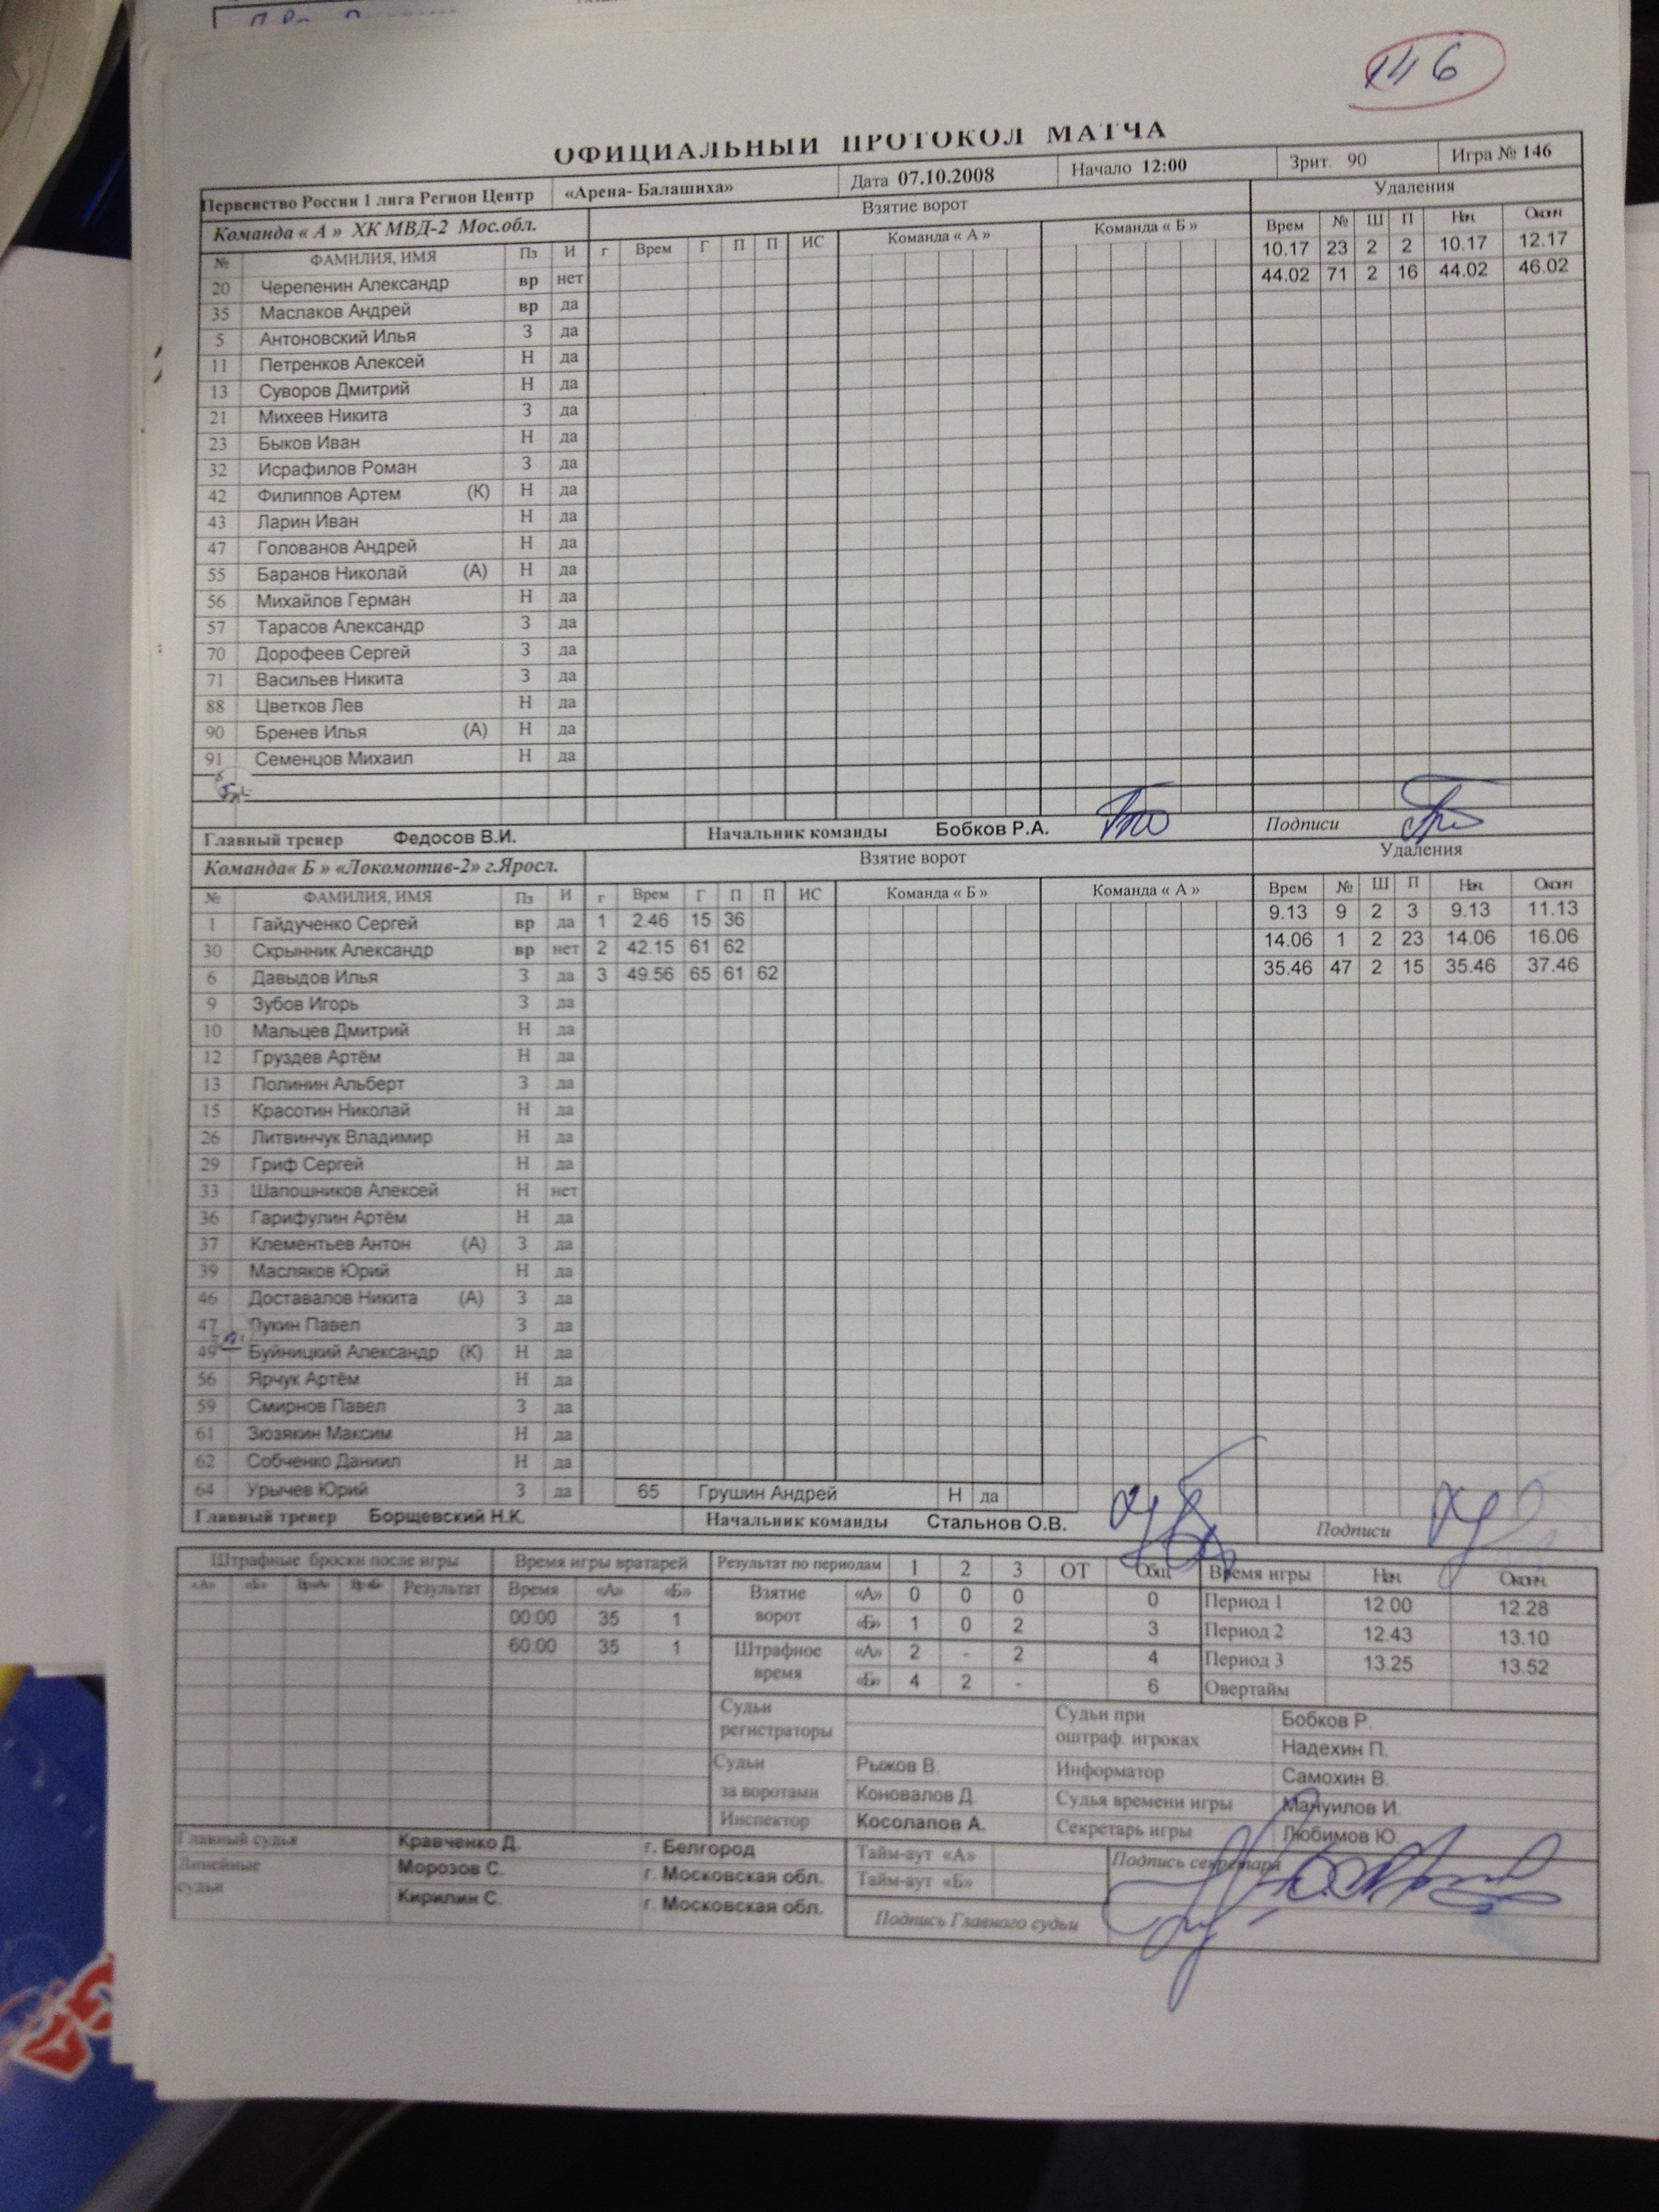 146
ОФИЦИАЛЬНЫЙ ПРОТОКОЛ МАТЧА
Первенство России 1 лига Регион Центр «Арена- Балашиха» Дата 07.10.2008 Начало 12:00 Зрит. 90 Игра № 146
Команда « А » ХК МВД-2 Мос.обл. Взятие ворот Удаления
№ ФАМИЛИЯ, ИМЯ Пз И г Врем Г П П ИС Команда « А » Команда « Б » Врем № Ш П Нач. Оконч.
20 Черепенин Александр вр нет 10.17 23 2 2 10.17 12.17
35 Маслаков Андрей вр да 44.02 71 2 16 44.02 46.02
5 Антоновский Илья З да
11 Петренков Алексей Н да
13 Суворов Дмитрий Н да
21 Михеев Никита З да
23 Быков Иван Н да
32 Исрафилов Роман З да
42 Филиппов Артем (К) Н да
43 Ларин Иван Н да
47 Голованов Андрей Н да
55 Баранов Николай (А) Н да
56 Михайлов Герман Н да
57 Тарасов Александр З да
70 Дорофеев Сергей З да
71 Васильев Никита З да
88 Цветков Лев Н да
90 Бренев Илья (А) Н да
91 Семенцов Михаил Н да
Главный тренер Федосов В.И. Начальник команды Бобков Р.А. Подписи
Команда« Б » «Локомотив-2» г.Яросл. Взятие ворот Удаления
№ ФАМИЛИЯ, ИМЯ Пз И г Врем Г П П ИС Команда « Б » Команда « А » Врем № Ш П Нач. Оконч.
1 Гайдученко Сергей вр да 1 2.46 15 36 9.13 9 2 3 9.13 11.13
30 Скрынник Александр вр нет 2 42.15 61 62 14.06 1 2 23 14.06 16.06
6 Давыдов Илья З да 3 49.56 65 61 62 35.46 47 2 15 35.46 37.46
9 Зубов Игорь З да
10 Мальцев Дмитрий Н да
12 Груздев Артём Н да
13 Полинин Альберт З да
15 Красотин Николай Н да
26 Литвинчук Владимир Н да
29 Гриф Сергей Н да
33 Шапошников Алексей Н нет
36 Гарифулин Артём Н да
37 Клементьев Антон (А) З да
39 Масляков Юрий Н да
46 Доставалов Никита (А) З да
47 Лукин Павел З да
49 Буйницкий Александр (К) Н да
56 Ярчук Артём Н да
59 Смирнов Павел З да
61 Зюзякин Максим Н да
62 Собченко Даниил Н да
64 Урычев Юрий З да 65 Грушин Андрей Н да
Главный тренер Борщевский Н.К. Начальник команды Стальнов О.В. Подписи
Штрафные броски после игры Время игры вратарей Результат по периодам 1 2 3 ОТ Общ Время игры Нач. Оконч.
«А» «Б» Вр«А» Вр«Б» Результат Время «А» «Б» Взятие ворот «А» 0 0 0 0 Период 1 12.00 12.28
00:00 35 1 «Б» 1 0 2 3 Период 2 12.43 13.10
60:00 35 1 Штрафное время «А» 2 - 2 4 Период 3 13.25 13.52
«Б» 4 2 - 6 Овертайм
Судьи регистраторы Судьи при оштраф. игроках Бобков Р.
Надехин П.
Судьи за воротами Рыжов В. Информатор Самохин В.
Коновалов Д. Судья времени игры Мануилов И.
Инспектор Косолапов А. Секретарь игры Любимов Ю.
Главный судья Кравченко Д. г. Белгород Тайм-аут «А» Подпись секретаря
Линейные судьи Морозов С. г. Московская обл. Тайм-аут «Б»
Кирилин С. г. Московская обл. Подпись Главного судьи